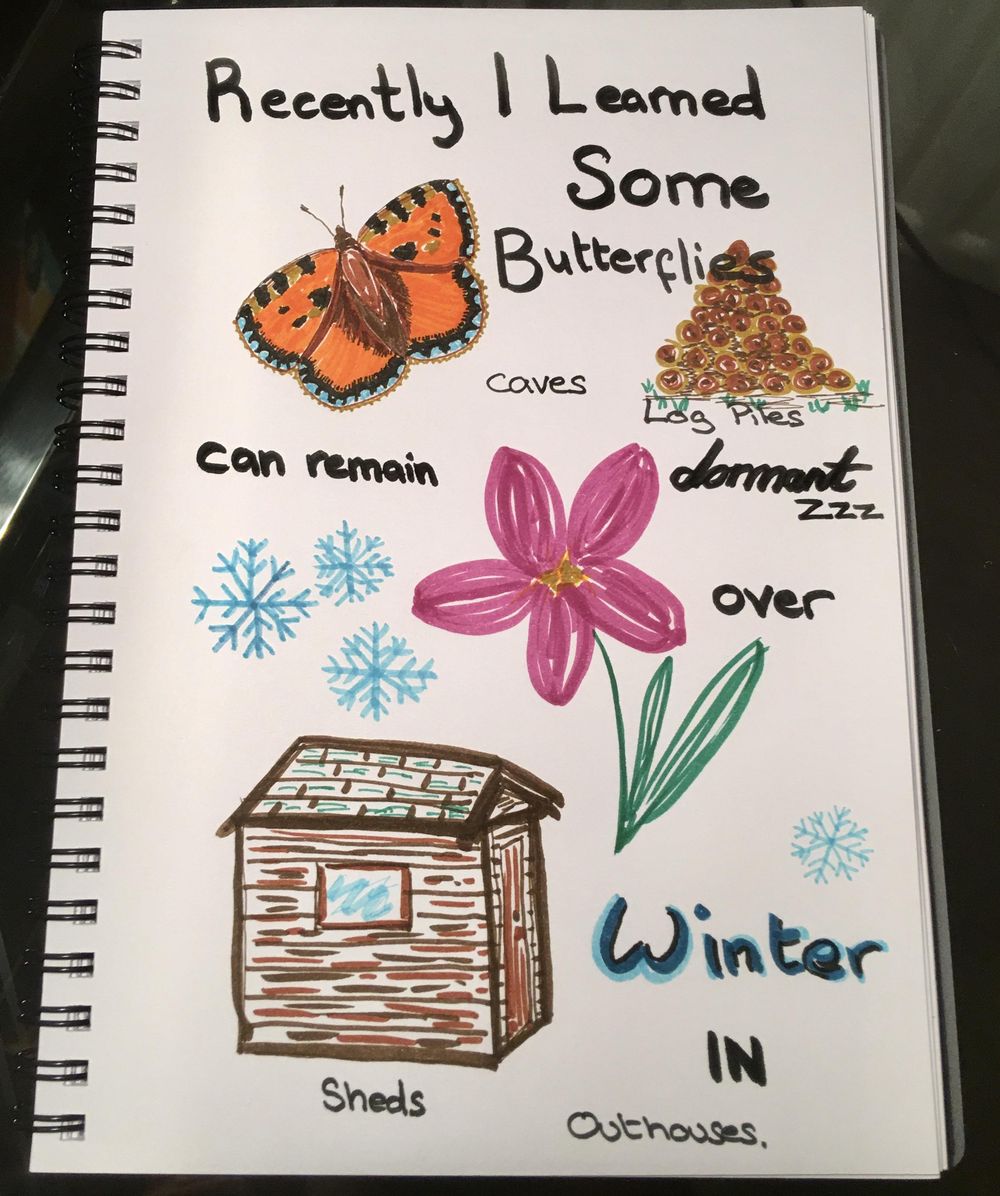 Recently I Learned
Some
Butterflies
caves
Log Piles
can remain
dormant
zzz
over
Winter
IN
Sheds
Outhouses.